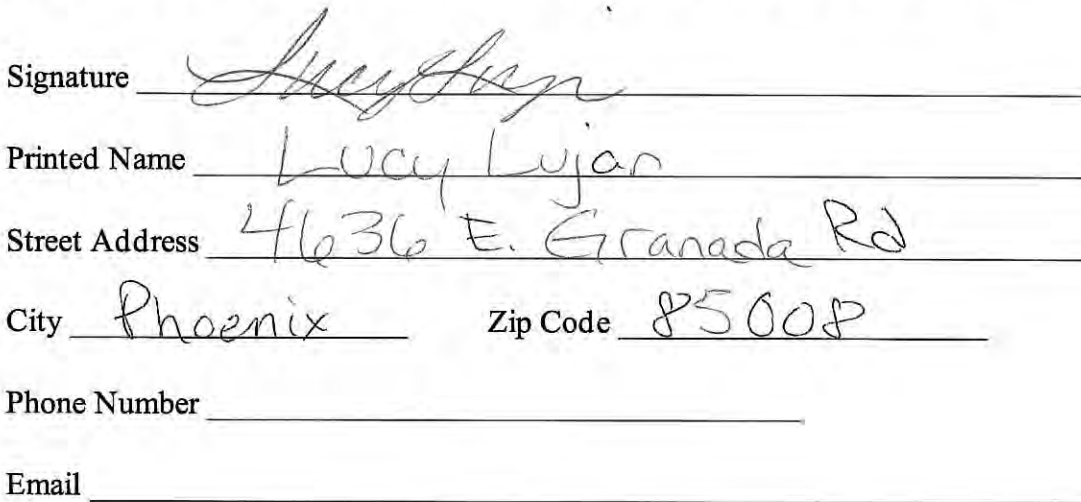 Signature Lucy Lujan
Printed Name Lucy Lujan
Street Address 4636 E. Granada Rd
City Phoenix Zip Code 85008
Phone Number
Email